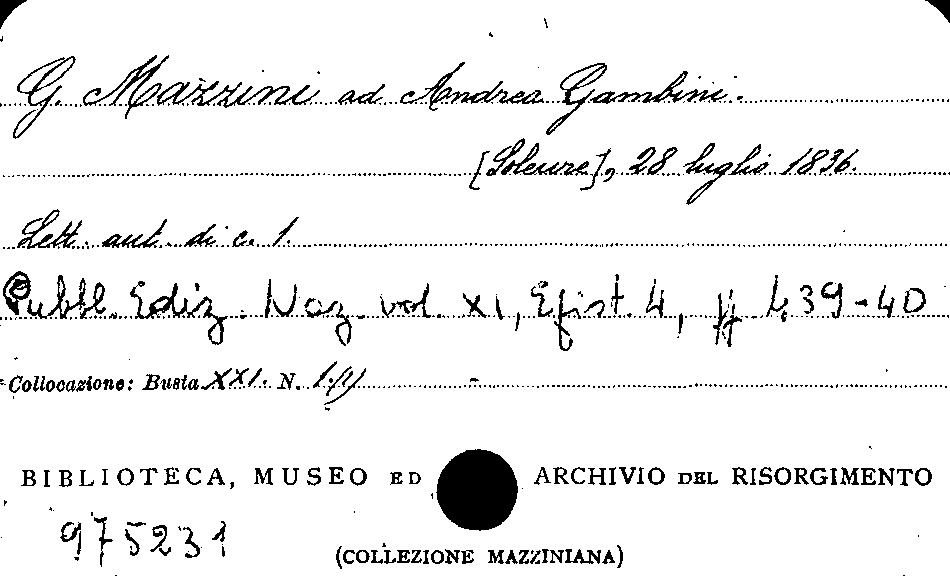 G. Mazzini ad Andrea Gambini.
[Soleure], 28 luglio 1836.
Lett. aut. di c. 1.
Pubbl. Ediz. Naz. vol. XI, Epist. 4, pp. 439-40
Collocazione: Busta XXI. N.
BIBLIOTECA, MUSEO ED ARCHIVIO DEL RISORGIMENTO
975231
(COLLEZIONE MAZZINIANA)